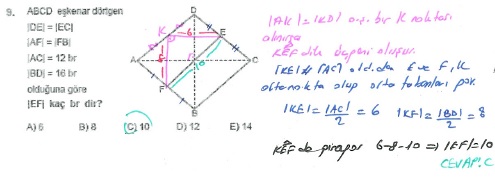 9. ABCD eşkenar dörtgen
|DE| = |EC|
|AF| = |FB|
|AC| = 12 br
|BD| = 16 br
olduğuna göre
|EF| kaç br dir?
A) 6 B) 8 C) 10 D) 12 E) 14
D
K 6 E
A C
8 10
F
B
|AK| = |KD| o.ş. bir K noktası
alınırsa
KEF dik üçgeni oluşur.
|KE| // |AC| old. dan E ve F, K
orta nokta olup orta tabanları var.
|KE| = |AC| / 2 = 6 |KF| = |BD| / 2 = 8
KEF de pisagor 6-8-10 ⇒ |EF| = 10
CEVAP: C